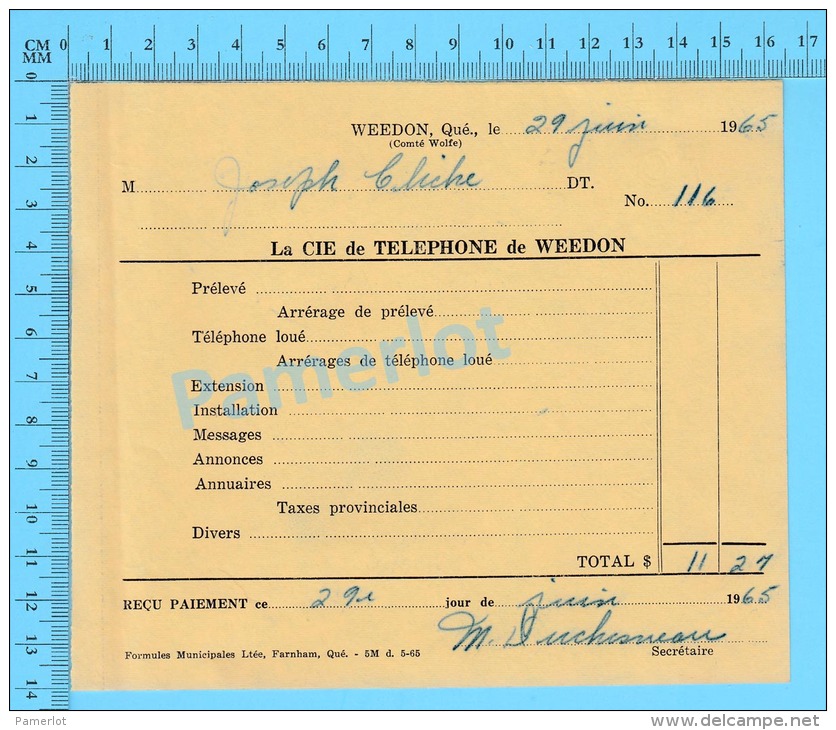 CM 0 1 2 3 4 5 6 7 8 9 10 11 12 13 14 15 16 17
MM
0 1 2 3 4 5 6 7 8 9 10 11 12 13 14
WEEDON, Qué., le 29 juin 1965
(Comté Wolfe)
M Joseph Cliche DT.
No. 116
La CIE de TELEPHONE de WEEDON
Prélevé
Arrérage de prélevé
Téléphone loué
Arrérages de téléphone loué
Pamerlot
Extension
Installation
Messages
Annonces
Annuaires
Taxes provinciales
Divers
TOTAL $ 11 27
REÇU PAIEMENT ce 29e jour de juin 1965
M. Duchesneau
Secrétaire
Formules Municipales Ltée, Farnham, Qué. - 5M d. 5-65
Pamerlot
www.delcampe.net